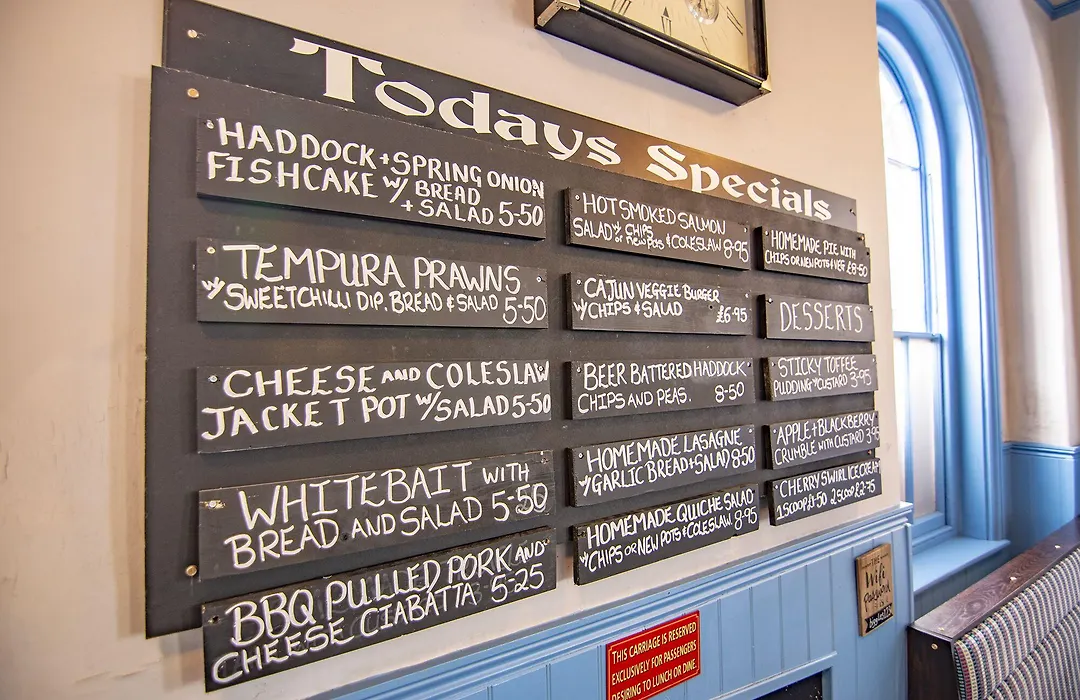 Todays Specials
HADDOCK + SPRING ONION
FISHCAKE W/ BREAD
+ SALAD 5-50
TEMPURA PRAWNS
W/ SWEETCHILLI DIP, BREAD & SALAD 5-50
CHEESE AND COLESLAW
JACKET POT W/ SALAD 5-50
WHITEBAIT WITH
BREAD AND SALAD 5-50
BBQ PULLED PORK AND
CHEESE CIABATTA 5-25
HOT SMOKED SALMON
SALAD W/ CHIPS
or new pots & COLESLAW 8-95
CAJUN VEGGIE BURGER
W/ CHIPS & SALAD £6-95
BEER BATTERED HADDOCK
CHIPS AND PEAS. 8-50
HOMEMADE LASAGNE
W/ GARLIC BREAD + SALAD 8-50
HOMEMADE QUICHE SALAD
W/ CHIPS OR NEW POTS & COLESLAW 8-95
HOMEMADE PIE WITH
CHIPS OR NEW POTS & VEG £8-50
DESSERTS
STICKY TOFFEE
PUDDING W/ CUSTARD 3-95
APPLE + BLACKBERRY
CRUMBLE WITH CUSTARD 3-95
CHERRY SWIRL ICE CREAM
1 SCOOP £1-50 2 SCOOP £2-75
THIS CARRIAGE IS RESERVED
EXCLUSIVELY FOR PASSENGERS
DESIRING TO LUNCH OR DINE.
THE
Wifi
Password